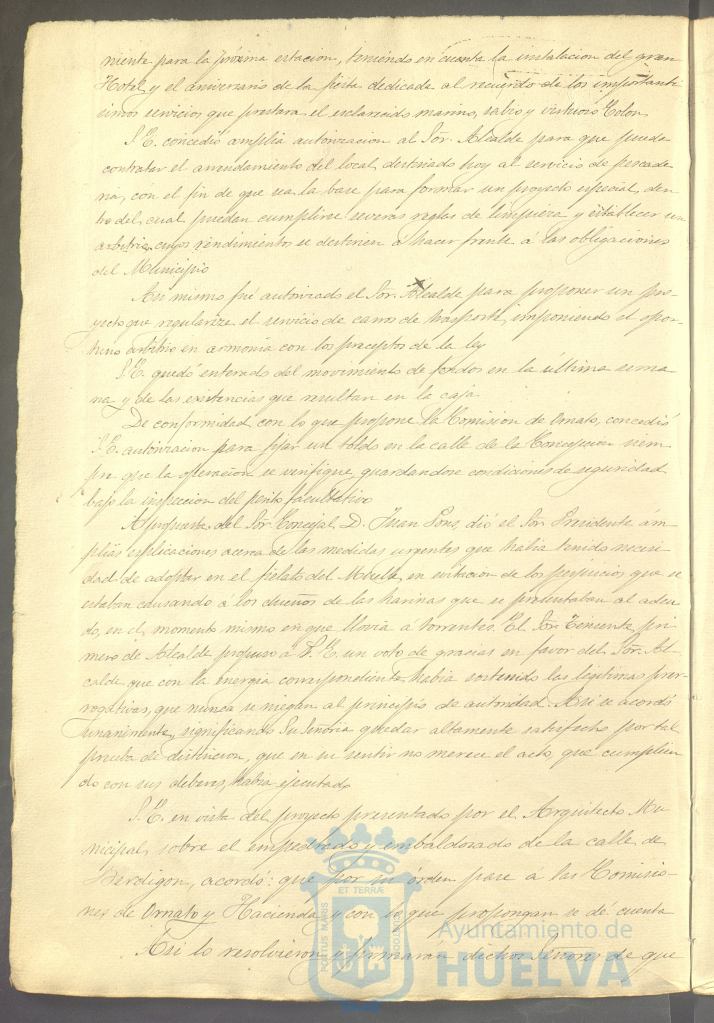 niente para la próxima estacion, teniendo en cuenta la instalacion del gran
Hotel y el aniversario de la fiesta dedicada al recuerdo de los importanti-
simos servicios que prestara el esclarecido marino, sabio y virtuoso Colon
S. E. concedió amplia autorizacion al Sor. Alcalde para que pueda
contratar el arrendamiento del local destinado hoy al servicio de pescade-
ria, con el fin de que sea la base para formar un proyecto especial, den-
tro del cual puedan cumplirse severas reglas de limpieza y establecer un
arbitrio cuyos rendimientos se destinen a hacer frente á las obligaciones
del Municipio
Asi mismo fué autorizado el Sor. Alcalde para proponer un pro-
yecto que regularize el servicio de carros de trasporte, imponiendo el opor-
tuno arbitrio en armonia con los preceptos de la ley
S. E. quedó enterado del movimiento de fondos en la ultima sema-
na y de las existencias que resultan en la caja
De conformidad con lo que propone la Comision de Ornato, concedió
S. E. autorizacion para fijar un toldo en la calle de la Concepcion siem-
pre que la operacion se verifique, guardandose condiciones de seguridad
bajo la inspeccion del perito facultativo
A propuesta del Sor Concejal D. Juan Pons, dió el Sor Presidente ám-
plias esplicaciones acerca de las medidas urgentes que habia tenido necesi-
dad de adoptar en el fielato del Muelle, en evitacion de los perjuicios que se
estaban causando á los dueños de las harinas que se presentaban al adeu-
do, en el momento mismo en que llovia á torrentes. El Sor Teniente pri-
mero de Alcalde propuso á S. E. un voto de gracias en favor del Sor. Al-
calde que con la energia correspondiente habia sostenido las legitimas prer-
rogativas, que nunca se niegan al principio de autoridad. Asi se acordó
unanimente, significando Su Señoria quedar altamente satisfecho por tal
prueba de distincion, que en su sentir no merece el acto, que cumplien-
do con sus deberes, habia ejecutado
S. E. en vista del proyecto presentado por el Arquitecto Mu-
nicipal, sobre el empedrado y embaldosado de la calle de
Berdigon, acordó: que por su órden pase á las Comisio-
nes de Ornato y Hacienda y con lo que propongan se dé cuenta
Asi lo resolvieron y firmarán dichos Señores de que
PORTUS MARIS
ET TERRÆ
CUSTODIA
Ayuntamiento de
HUELVA